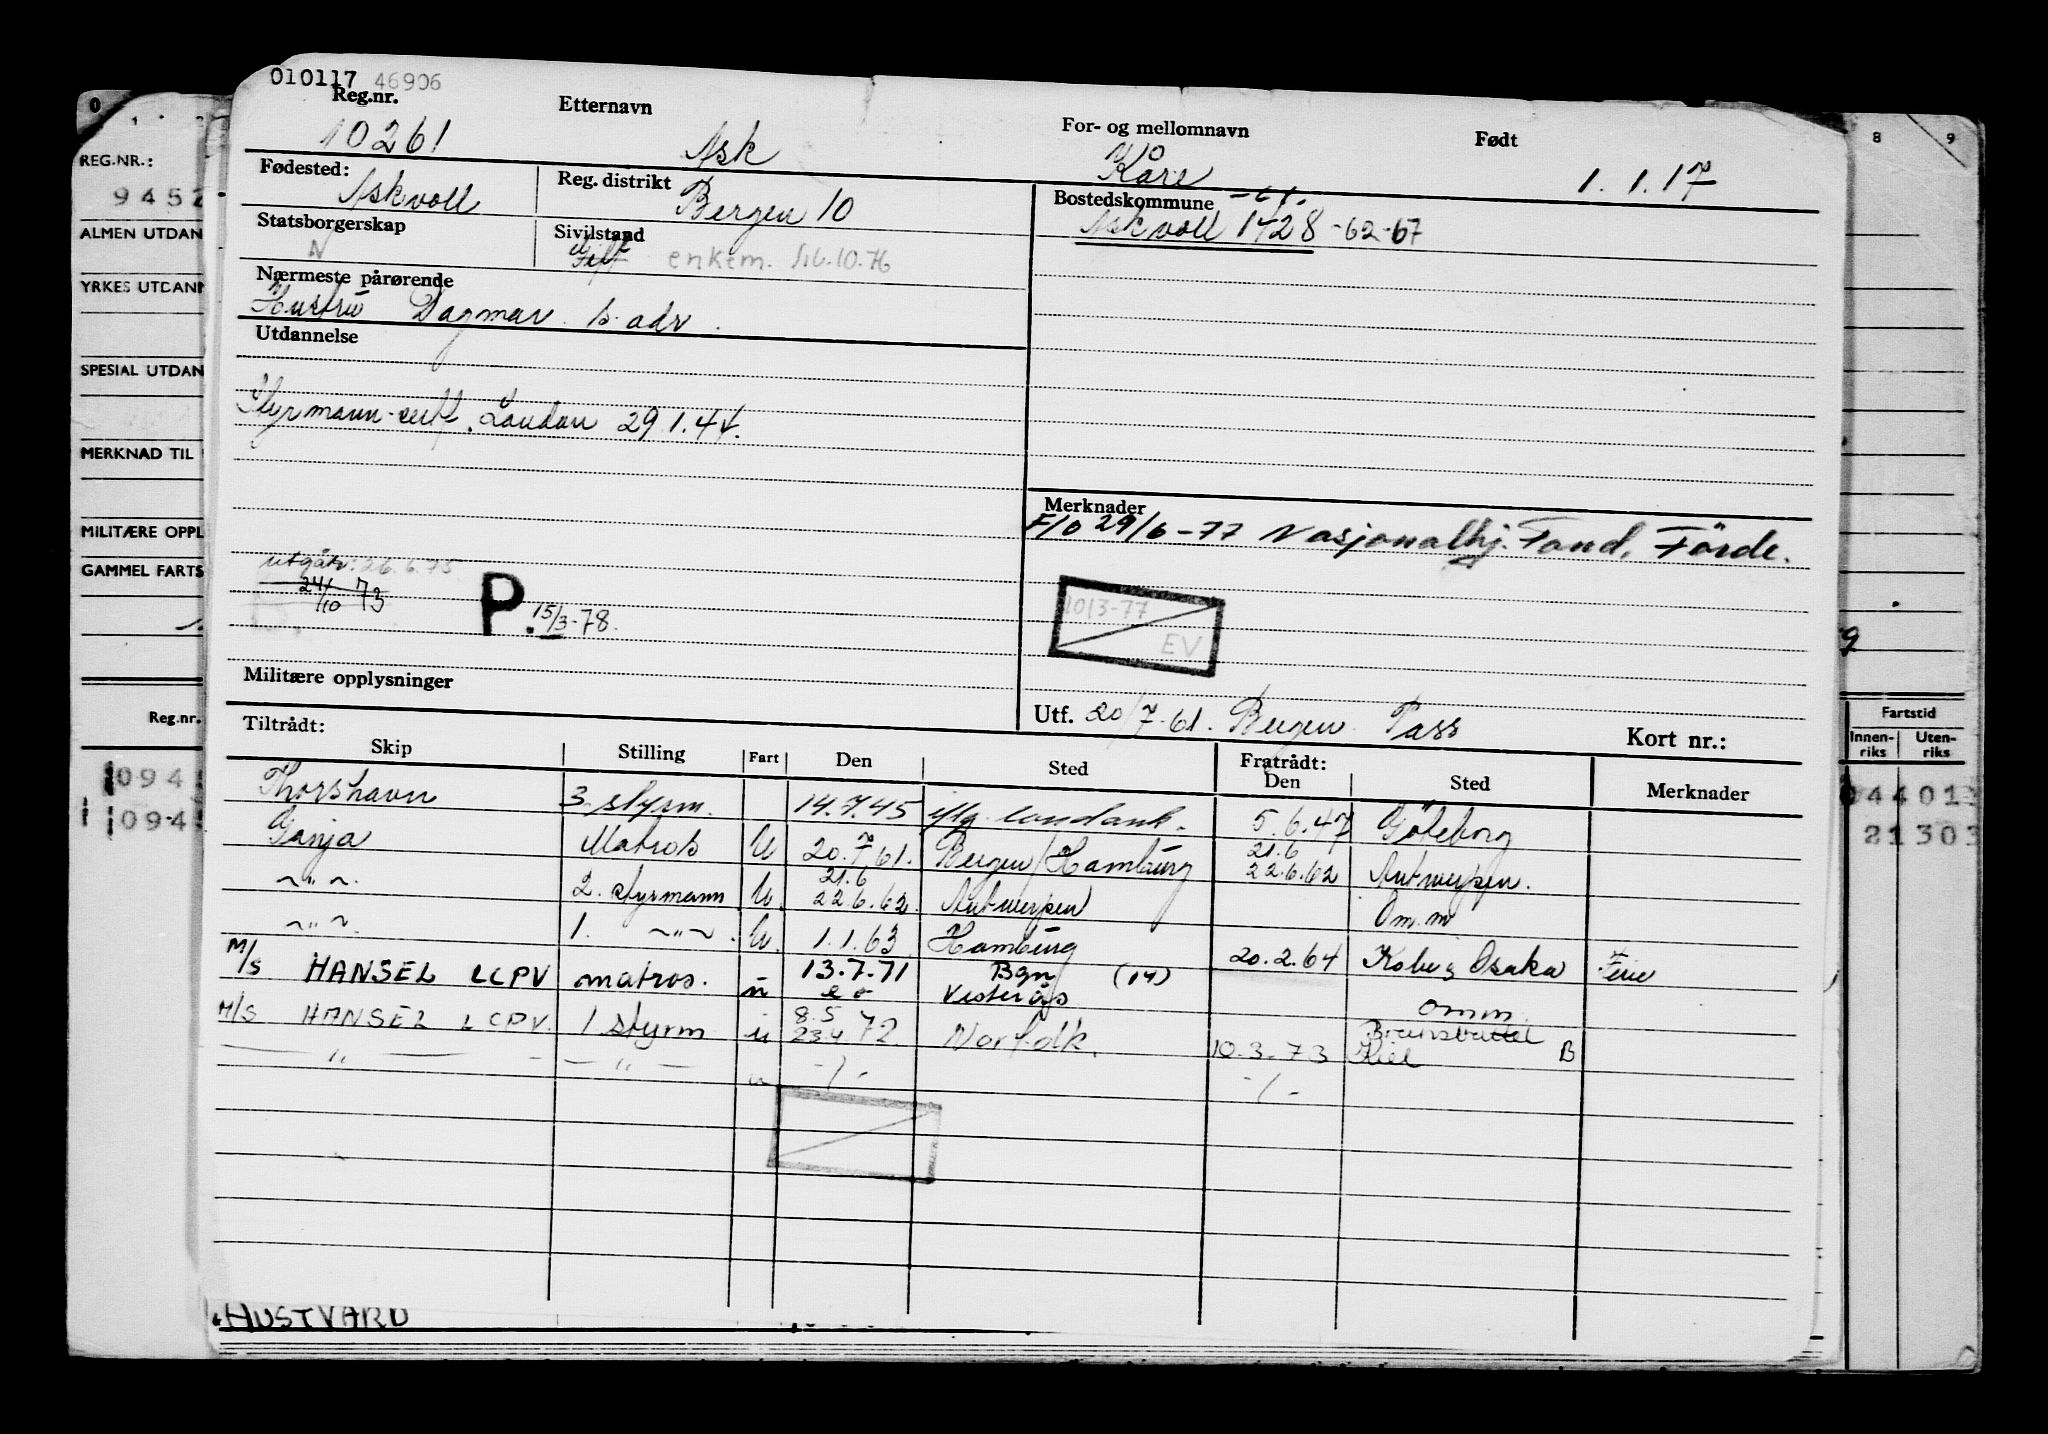 010117 46906
Reg.nr. Etternavn For- og mellomnavn Født
10261 Ask Kåre 1.1.17
Fødested: Askvoll Reg. distrikt Bergen 10 Bostedskommune -61.
Askvoll 1428 -62-67
Statsborgerskap N Sivilstand Gift enkem. 16.10.76
Nærmeste pårørende
Hustru Dagmar s. adr.
Utdannelse
Styrmann-sert. London 29.1.44.
Merknader
F/O 29/6-77 Nasjonalhj. Fond, Förde.
utgått: 26.6.75
24/10 73
P. 15/3-78.
10/3-77
EV
Militære opplysninger
Utf. 20/7-61. Bergen Pass Kort nr.:
Tiltrådt: Fratrådt:
Skip Stilling Fart Den Sted Den Sted Merknader
Thorshavn 3. styrm. 14.7.45 iflg. 5.6.47 Göteborg
Tanja Matros U 20.7.61. Bergen/Hamburg 21.6 22.6.62 Antwerpen.
-"- 2. styrmann U. 21.6 22.6.62. Antwerpen Om.m
-"- 1. -"- U. 1.1.63 Hamburg 20.2.64 Kobe Osaka Ferie
M/S HANSEL LCPV matros. u 13.7.71 Bgn (14) Vesterås omm.
M/S HANSEL LCPV. 1 styrm u 8.5 23.4 72. Norfolk. 10.3.73 Brunsbüttel Kiel B
-"- -"- u -/- -/-
REG.NR.:
9452
ALMEN UTDAN
YRKES UTDANN
SPESIAL UTDAN
MERKNAD TIL
MILITÆRE OPPL
GAMMEL FARTS
Reg.nr.
094
1 094
0
8 9
9
Fartstid
Innen-riks Uten-riks
44013
21303
HUSTVARD